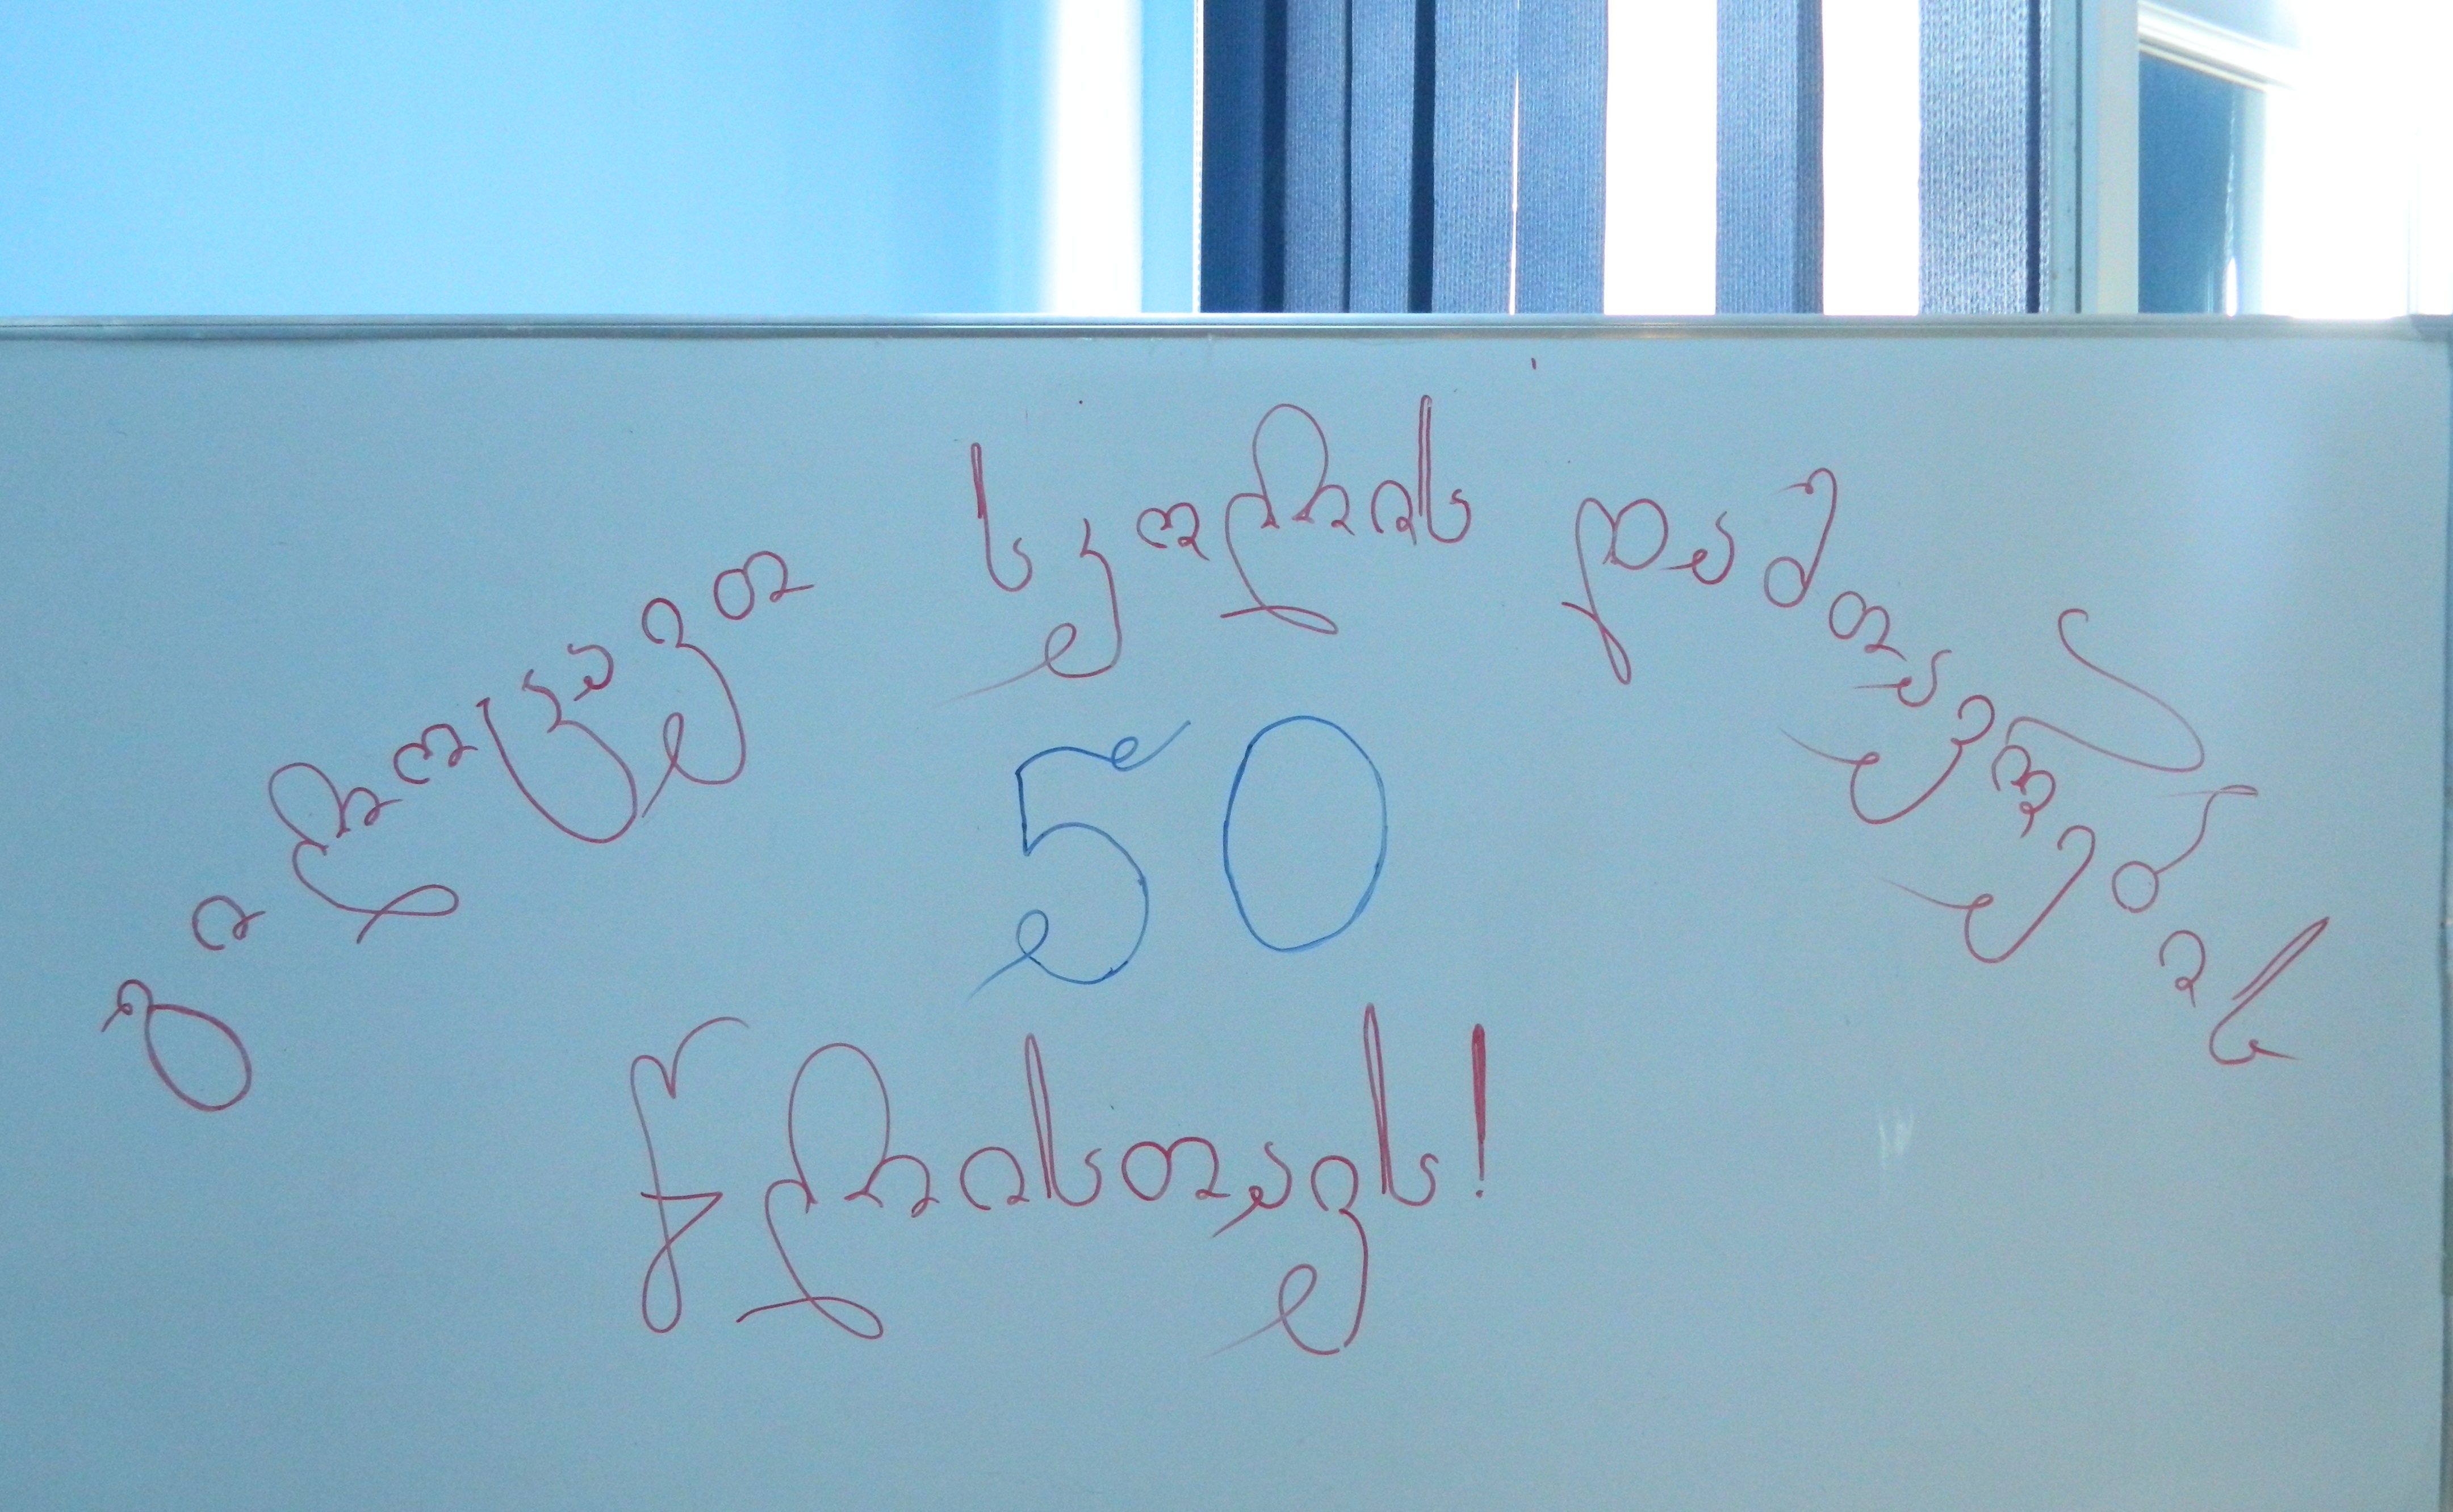 გილოცავთ სკოლის დამთავრების
50
წლისთავს!